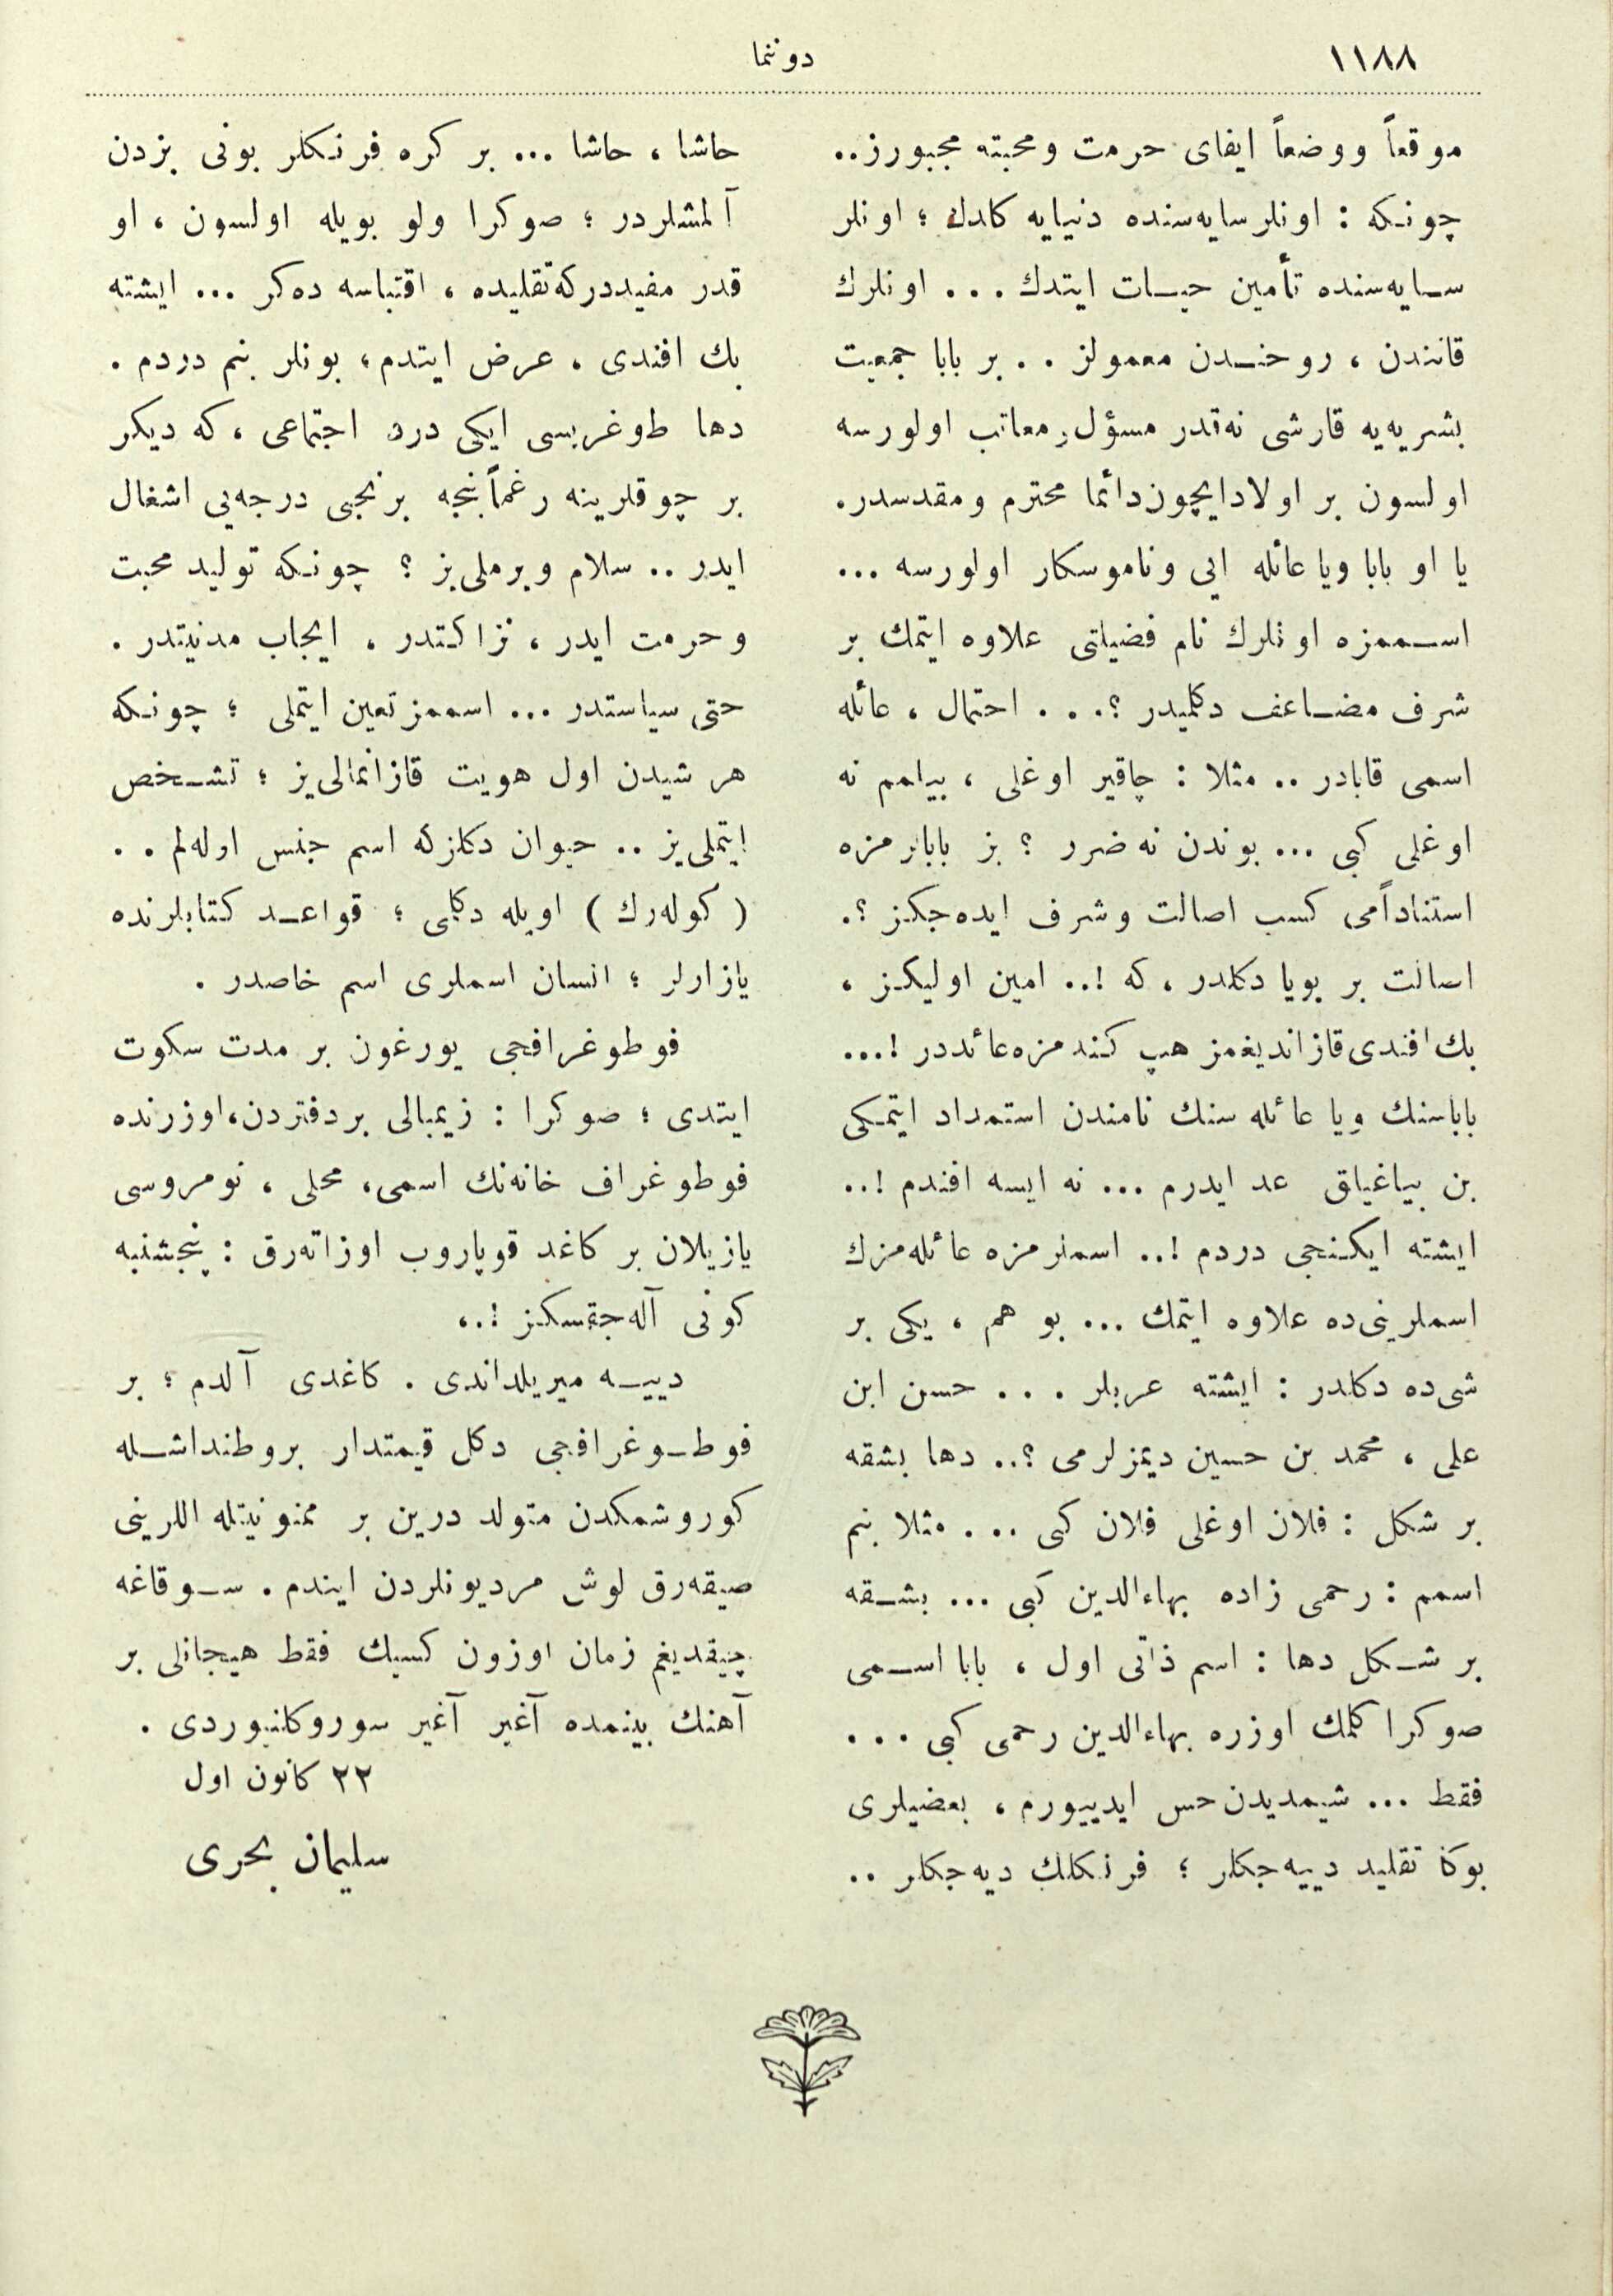 ١١٨٨
دوننما
موقعاً ووضعاً ايفاى حرمت ومحبته مجبورز..
چونكه : اونلر سايه‌سنده دنيايه كلدك ؛ اونلر
سايه‌سنده تأمين حيات ايتدك ... اونلرك
قانندن ، روحندن معمولز .. بر بابا جمعيت
بشريه‌يه قارشى نه‌قدر مسؤل ومعاتب اولورسه
اولسون بر اولاد ايچون دائما محترم ومقدسدر.
يا او بابا ويا عائله ايى وناموسكار اولورسه ...
اسممزه اونلرك نام فضيلتى علاوه ايتمك بر
شرف مضاعف دكليدر ؟... احتمال ، عائله
اسمى قابادر .. مثلا : چاقير اوغلى ، بيلمم نه
اوغلى كبى ... بوندن نه ضرر ؟ بز بابالرمزه
استناداًمى كسب اصالت وشرف ايده‌جكز ؟.
اصالت بر بويا دكلدر ، كه !.. امين اوليكز ،
بك افندى قازانديغمز هپ كندمزه عائددر !...
باباسنك ويا عائله سنك نامندن استمداد ايتمكى
بن بياغيلق عد ايدرم ... نه ايسه افندم !..
ايشته ايكنجى دردم !.. اسملرمزه عائله‌مزك
اسملرينى‌ده علاوه ايتمك ... بو هم ، يكى بر
شى‌ده دكلدر : ايشته عربلر ... حسن ابن
على ، محمد بن حسين ديمزلرمى ؟.. دها بشقه
بر شكل : فلان اوغلى فلان كبى ... مثلا بنم
اسمم : رحمى زاده بهاءالدين كبى ... بشقه
بر شكل دها : اسم ذاتى اول ، بابا اسمى
صوكرا كلمك اوزره بهاءالدين رحمى كبى ...
فقط ... شيمديدن حس ايدييورم ، بعضيلرى
بوكا تقليد دييه‌جكلر ؛ فرنكلك ديه‌جكلر ..
حاشا ، حاشا ... بر كره فرنكلر بونى بزدن
آلمشلردر ؛ صوكرا ولو بويله اولسون ، او
قدر مفيددركه تقليده ، اقتباسه ده‌كر ... ايشته
بك افندى ، عرض ايتدم ، بونلر بنم دردم .
دها طوغريسى ايكى درد اجتماعى ، كه ديكر
بر چوقلرينه رغماً بنجه برنجى درجه‌يى اشغال
ايدر .. سلام ويرملى‌يز ؟ چونكه توليد محبت
وحرمت ايدر ، نزاكتدر ، ايجاب مدنيتدر .
حتى سياستدر ... اسممز تعين ايتملى ؛ چونكه
هر شيدن اول هويت قازانمالى‌يز ؛ تشخص
ايتملى‌يز .. حيوان دكلزكه اسم جنس اوله‌لم ..
( كوله‌رك ) اويله دكلمى ؛ قواعد كتابلرنده
يازارلر ؛ انسان اسملرى اسم خاصدر .
فوطوغرافجى يورغون بر مدت سكوت
ايتدى ؛ صوكرا : زيمبالى بر دفتردن ، اوزرنده
فوطوغراف خانه‌نك اسمى ، محلى ، نومروسى
يازيلان بر كاغد قوپاروب اوزاته‌رق : پنجشنبه
كونى آله‌جقسكز !..
دييه ميريلداندى . كاغدى آلدم ؛ بر
فوطوغرافجى دكل قيمتدار بر وطنداشله
كوروشمكدن متولد درين بر ممنونيتله اللرينى
صيقه‌رق لوش مرديونلردن ايندم . سوقاغه
چيقديغم زمان اوزون كسيك فقط هيجانلى بر
آهنك بينمده آغير آغير سوروكلنيوردى .
٢٢ كانون اول
سليمان بحرى